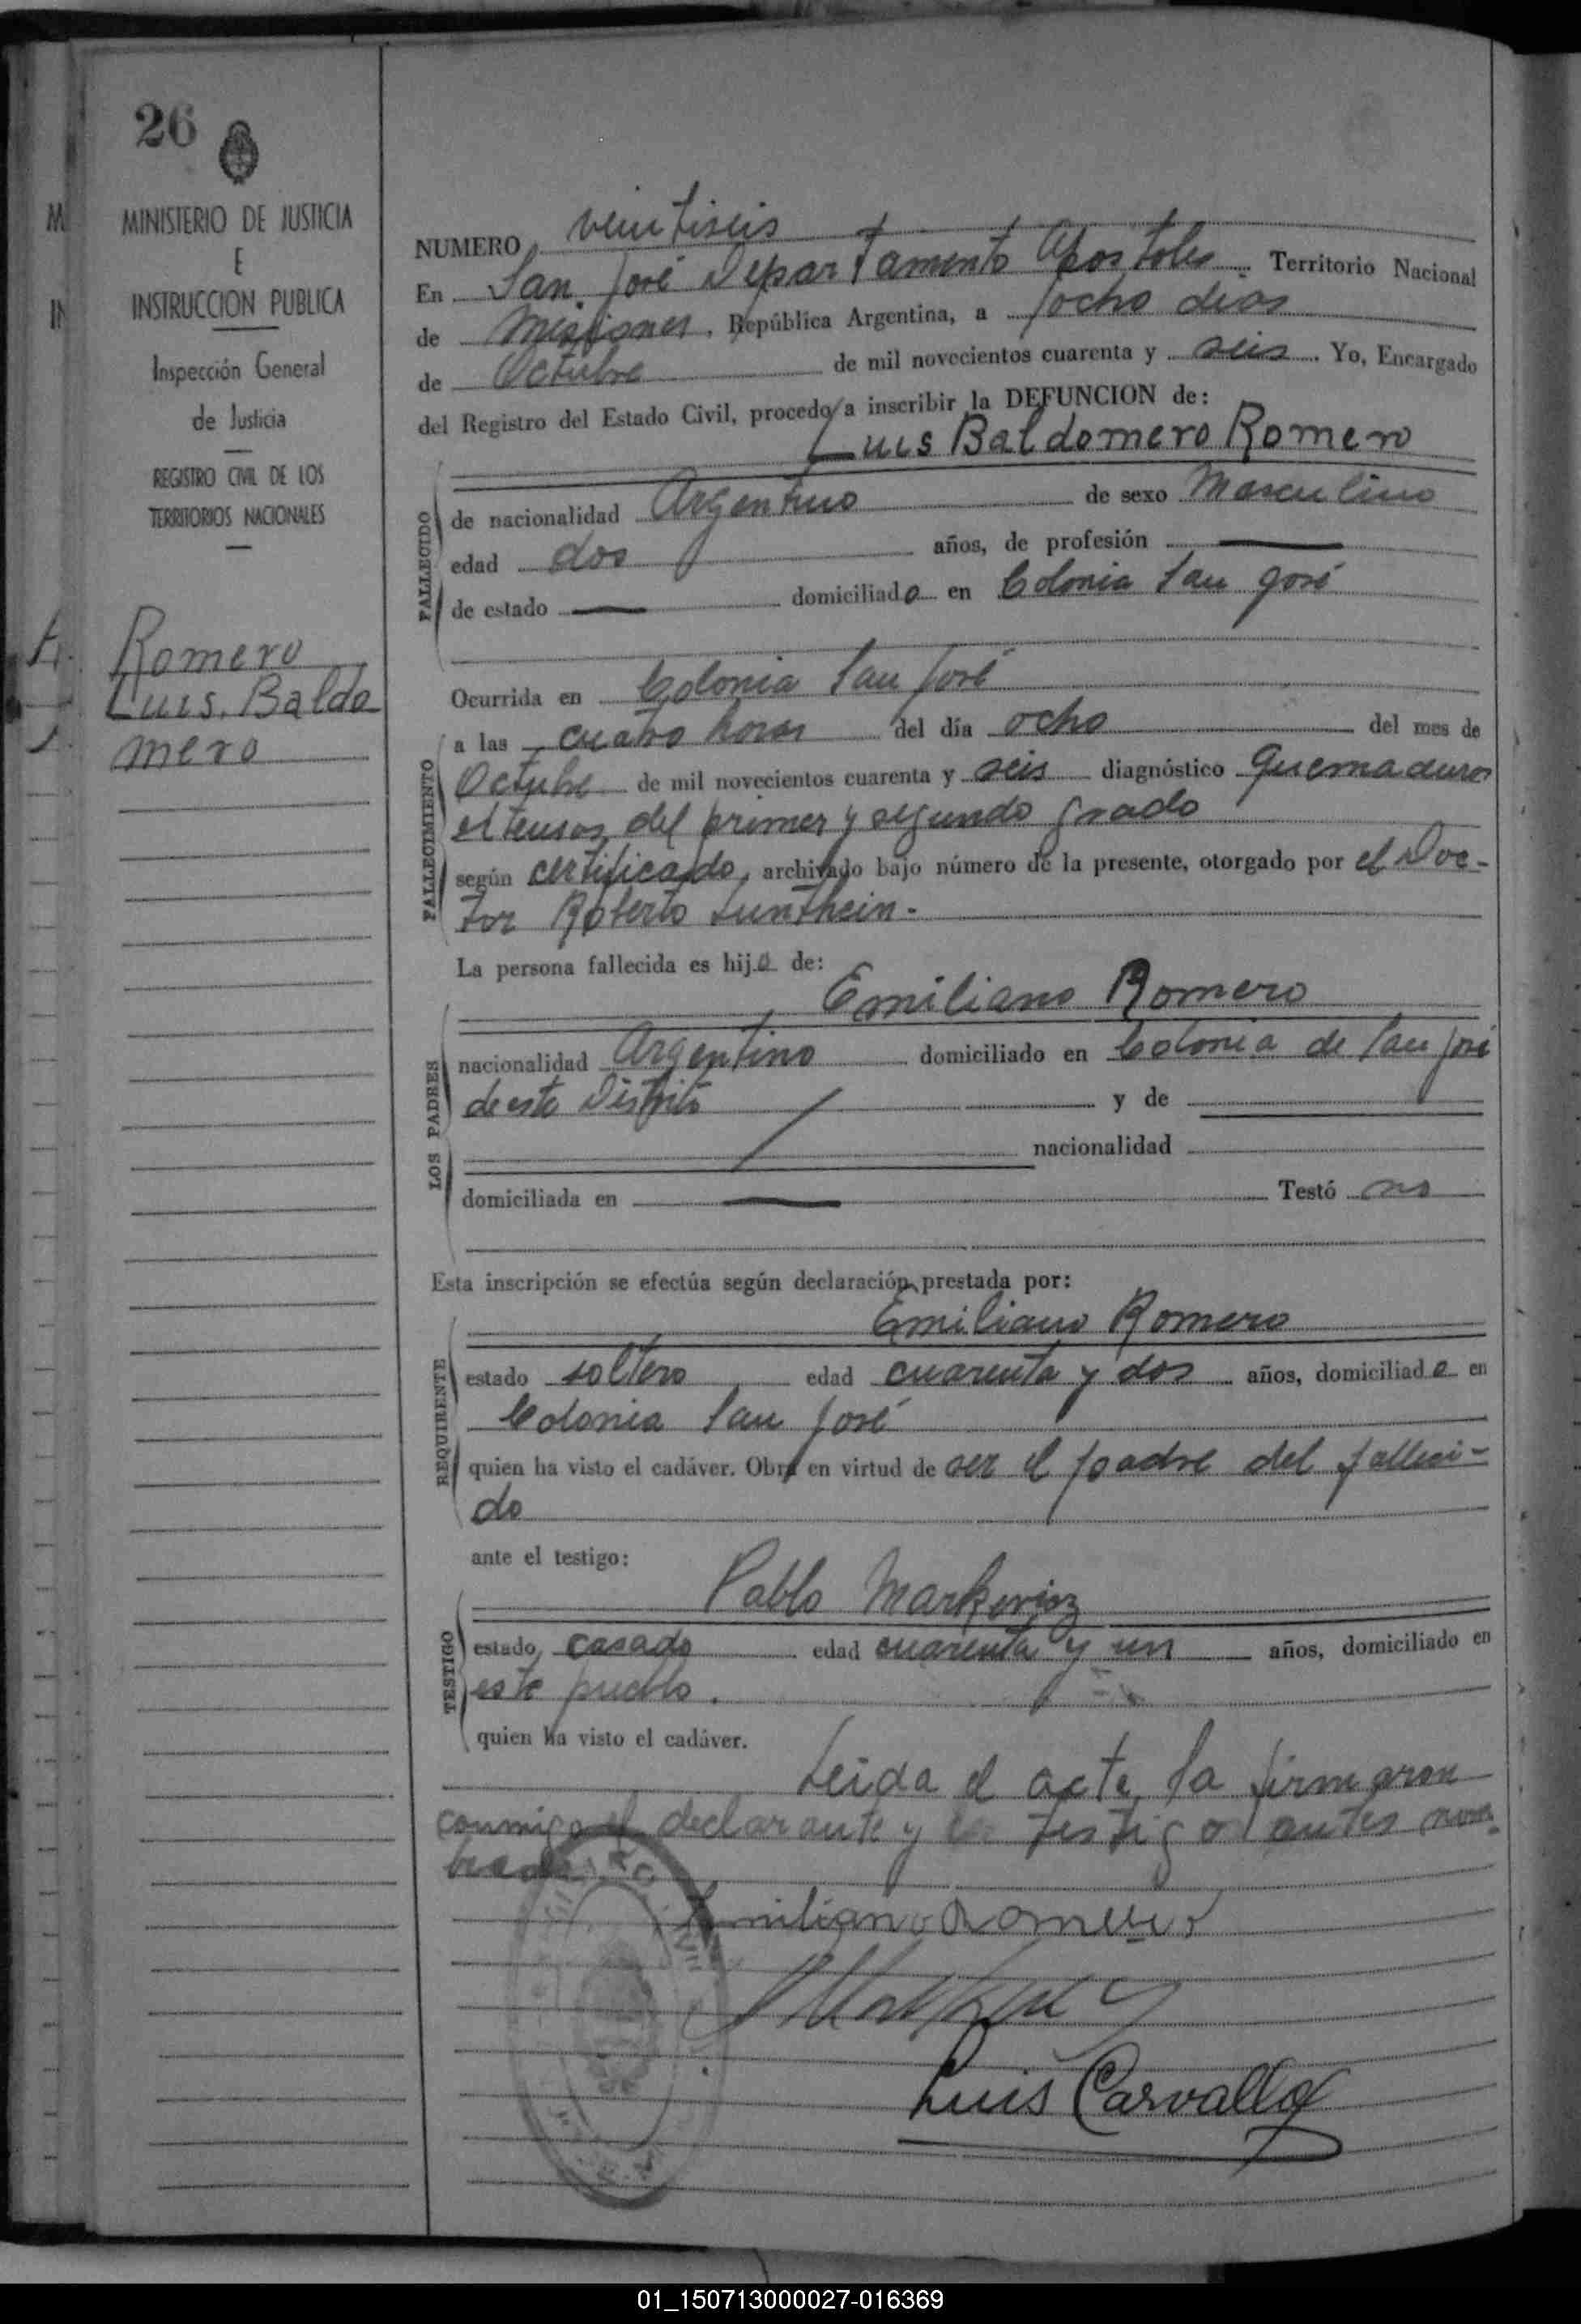 26
MINISTERIO DE JUSTICIA
E
INSTRUCCION PUBLICA
Inspección General
de Justicia
REGISTRO CIVIL DE LOS
TERRITORIOS NACIONALES
Romero
Luis. Baldo
mero
NUMERO veintiseis
En San José Departamento Apostoles Territorio Nacional
de Misiones, República Argentina, a ocho dias
de Octubre de mil novecientos cuarenta y seis. Yo, Encargado
del Registro del Estado Civil, procedo a inscribir la DEFUNCION de:
Luis Baldomero Romero
FALLECIDO
de nacionalidad Argentino de sexo Masculino
edad dos años, de profesión —
de estado — domiciliado en Colonia San José
Ocurrida en Colonia San José
a las cuatro horas del día ocho del mes de
FALLECIMIENTO
Octubre de mil novecientos cuarenta y seis diagnóstico Quemaduras
extensas del primer y segundo grado
según certificado, archivado bajo número de la presente, otorgado por el Doc-
tor Roberto
La persona fallecida es hijo de:
Emiliano Romero
LOS PADRES
nacionalidad Argentino domiciliado en Colonia de San José
de este Distrito y de
nacionalidad
domiciliada en — Testó no
Esta inscripción se efectúa según declaración prestada por:
Emiliano Romero
REQUIRENTE
estado soltero edad cuarenta y dos años, domiciliado en
Colonia San José
quien ha visto el cadáver. Obra en virtud de ser el padre del falleci-
do
ante el testigo:
Pablo Markovicz
TESTIGO
estado casado edad cuarenta y un años, domiciliado en
este pueblo.
quien ha visto el cadáver.
Leida el acta la firmaron
conmigo el declarante y testigo antes nom-
Emiliano Romero
Luis Carvallo
01_150713000027-016369